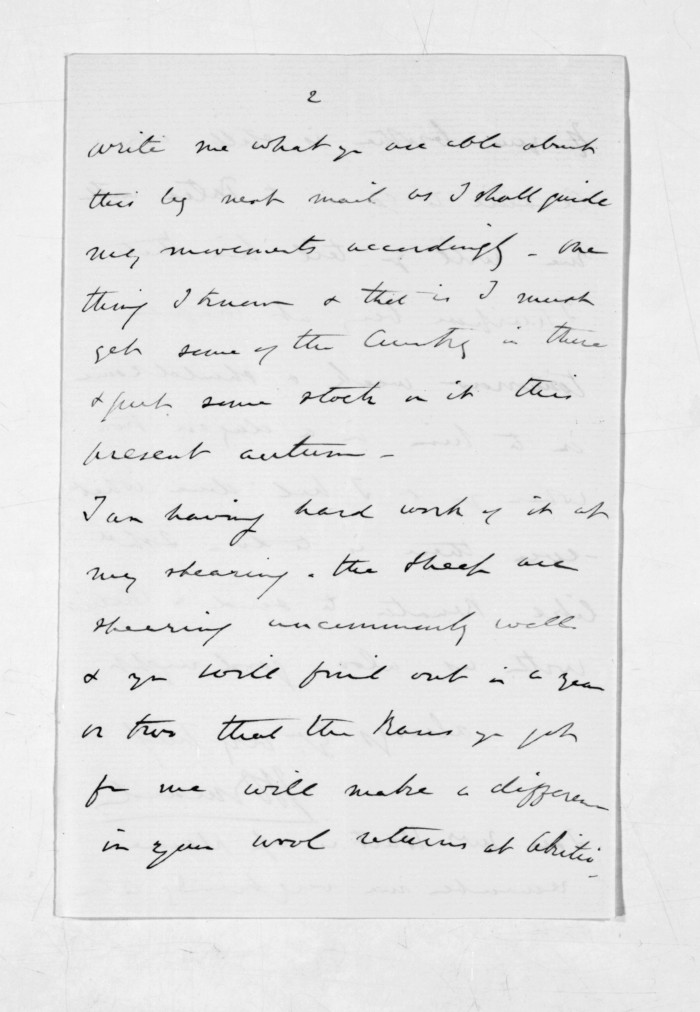 2
write me what yo are able about
this by next mail as I shall guide
my movements accordingly - One
thing I know & that is I must
get some of the Country in there
& put some stock on it this
present autumn -
I am having hard work of it at
my shearing. the Sheep are
shearing uncommonly well
& yo will find out in a year
or two that the Rams yo got
for me will make a difference
in your wool returns at Akitio.